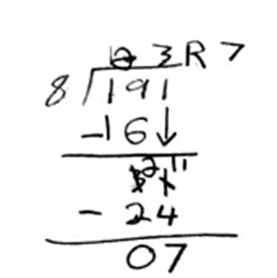 3 R 7
8 191
-16↓
2 11
- 24
07